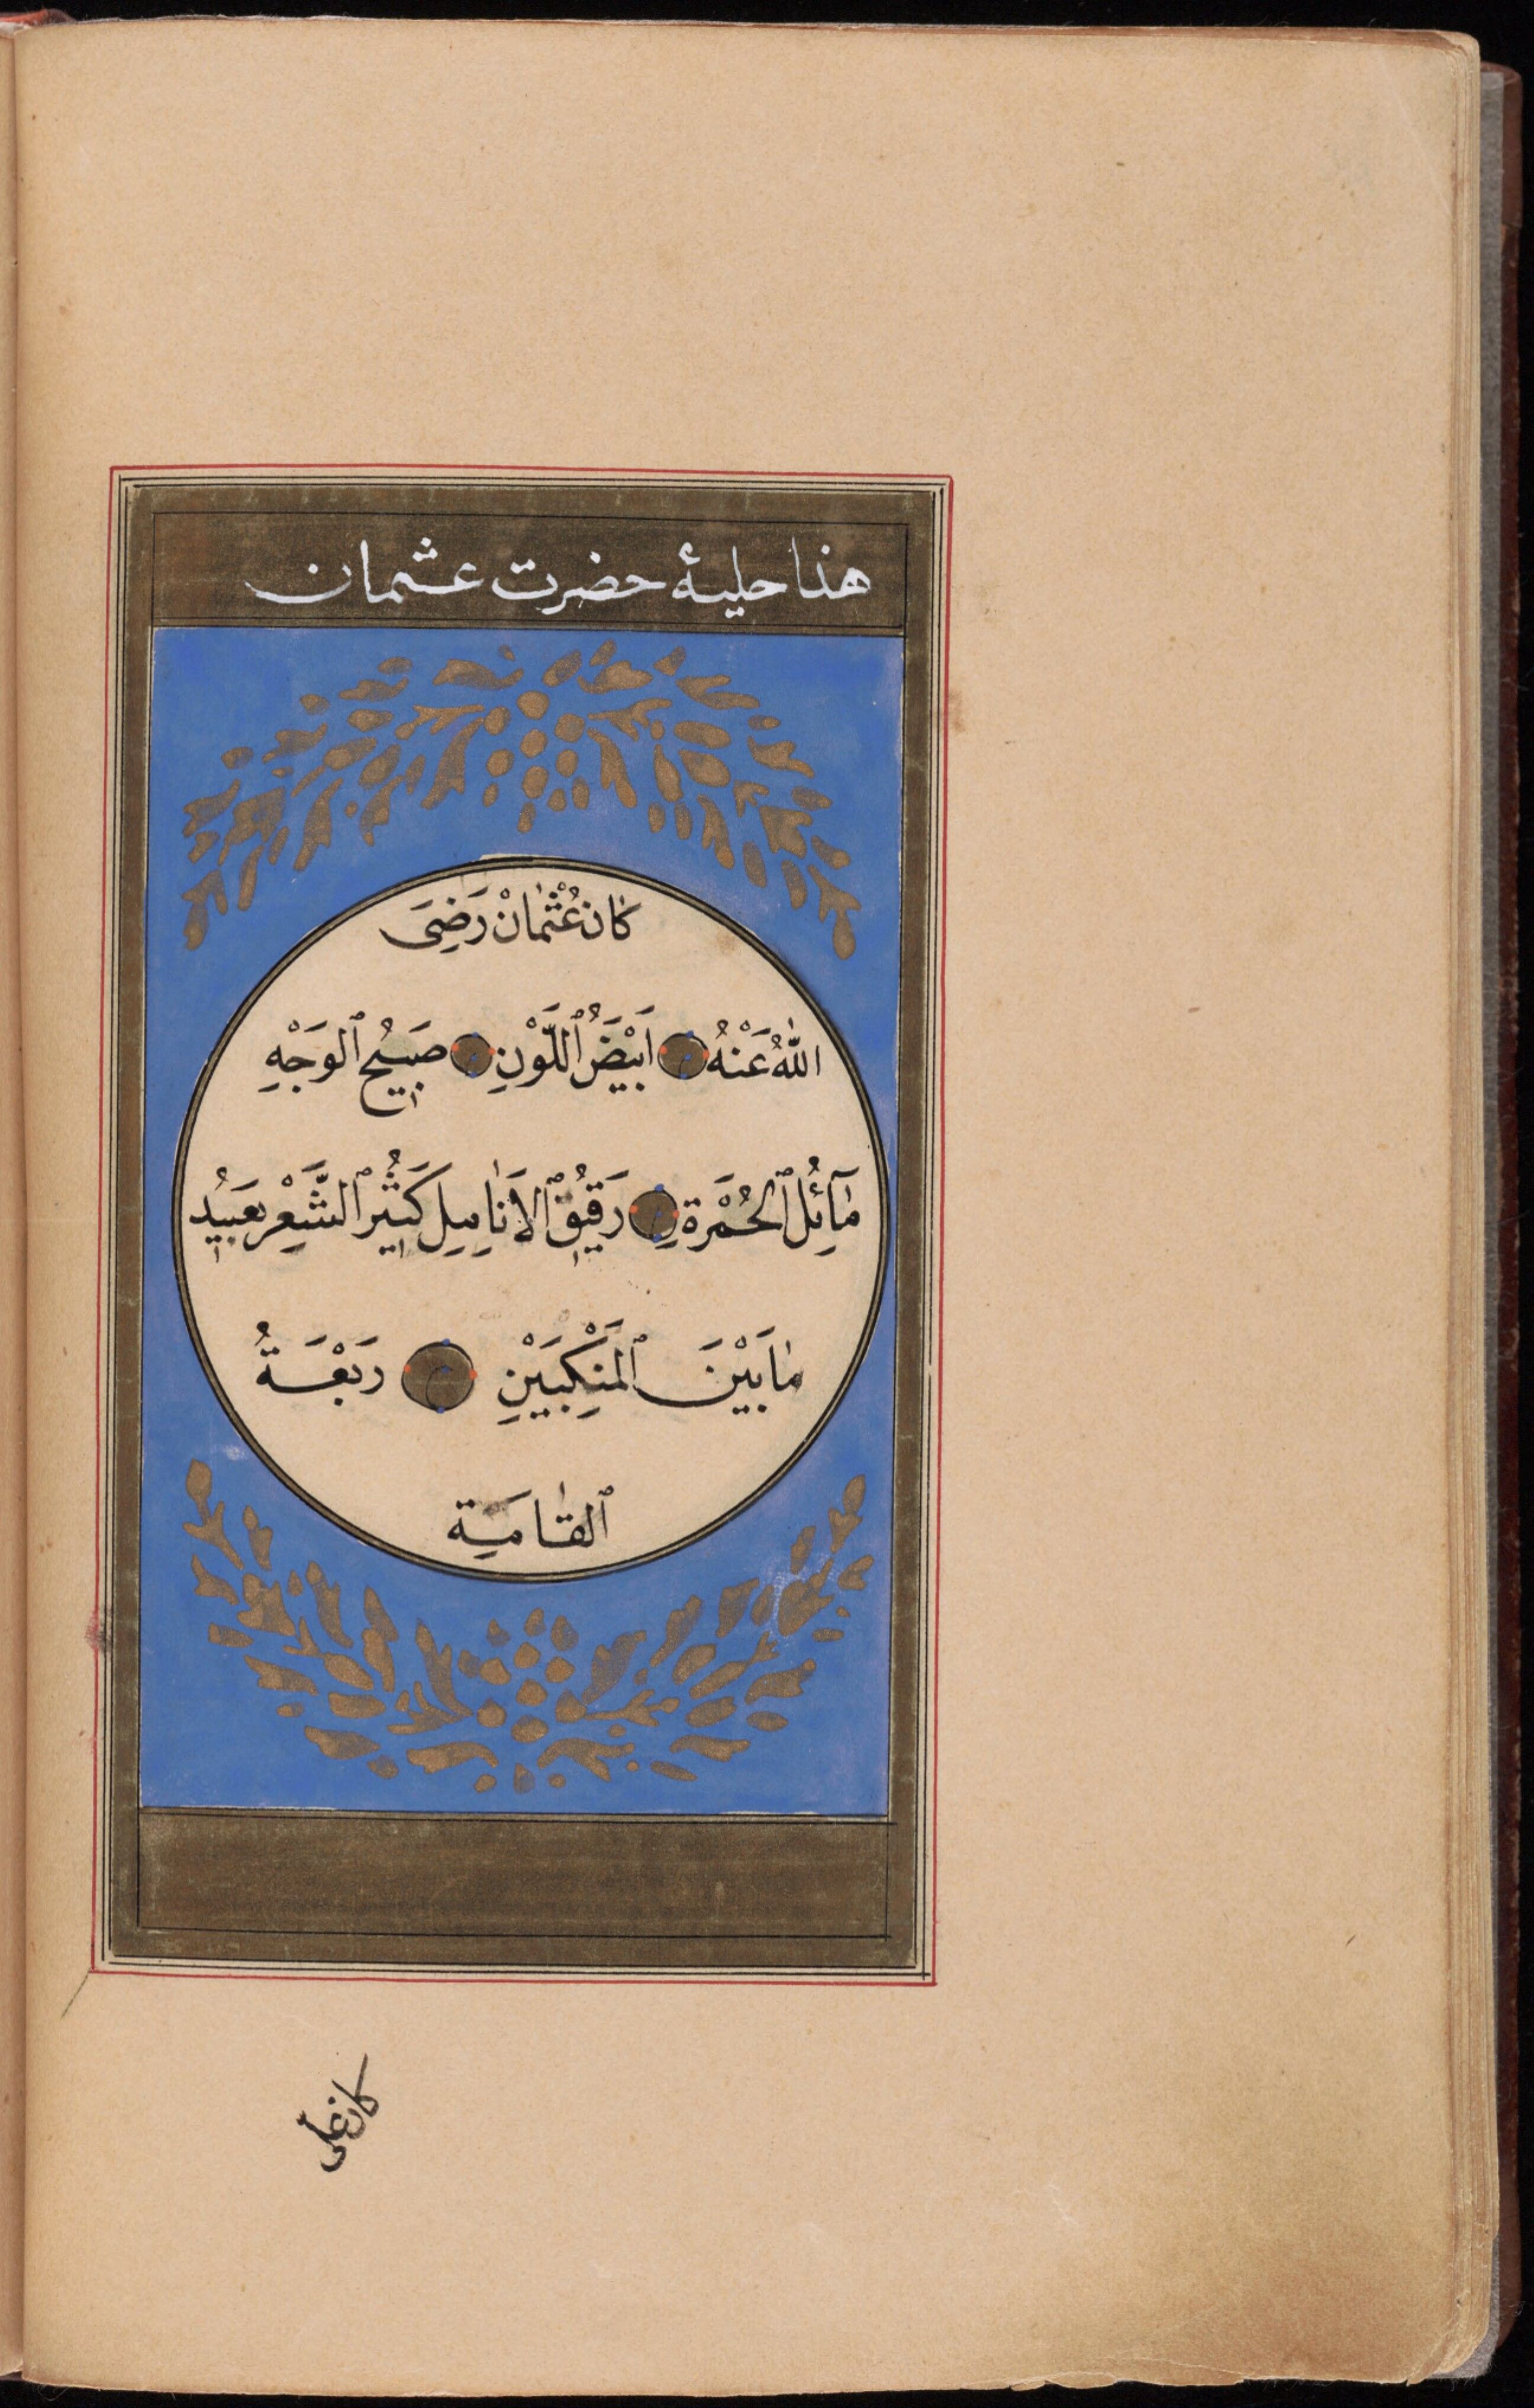 هذا حليۀ حضرت عثمان
كَانَ عُثْمَانْ رَضِىَ
اللّٰهُ عَنْهُ اَبْيَضُ ٱللَّوْنِ صَبِيحُ ٱلوَجْهِ
مَآئِلُ ٱلحُمْرَةِ رَقِيقُ ٱلاَنَامِلِ كَثِيرُ ٱلشَّعْرِ بَعِيدُ
مَابَيْنَ ٱلمَنْكِبَيْنِ رَبْعَةُ
ٱلقَامَةِ
كان على